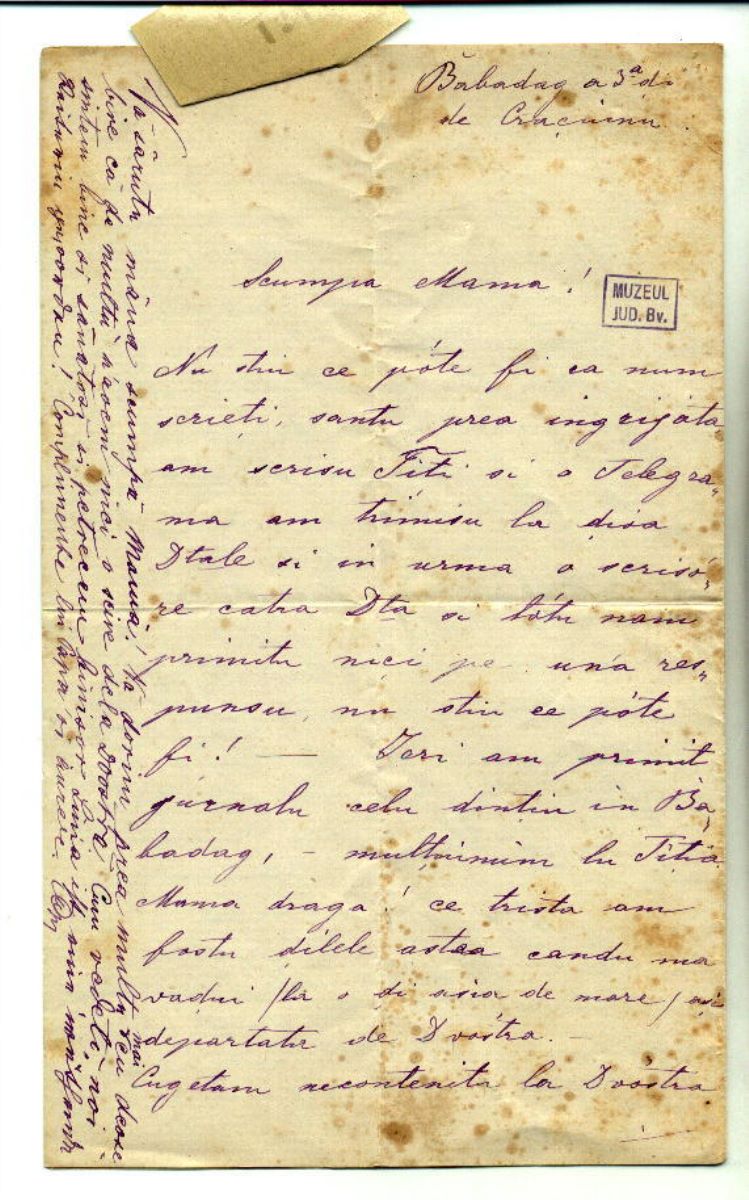 Băbadag a 3ª di
de Crăciunu.
Scumpa Mama!
MUZEUL
JUD. Bv.
Nu stiu ce póte fi ca num
scrieți, santu prea ingrijata
am scrisu Titi si o Telegra„
ma am trimisu la disa
Dtale si in urma o scrisó„
re catra Dta si totu nam
primitu nici pe una res„
punsu, nu stiu ce póte
fi! — Ieri am primit
jurnalu celu dintiu in Ba„
badag, – mulțuimim lu Titia
Mama draga! ce trista am
fostu dilele astea candu ma
vadui /la o di asia de mare/ asi
departatu de Dvóstra. –
mai
Cugetam necontenitu la Dvóstra
Vă sărutu mâna scumpă Mamă! Vă dorim prea multu eu deose
bire că de multu n'avem nici o scire dela Dvostră. Cum vedeti, noi
sintem bine si sănătosi si petrecem binisor
Complimente lui Papa si